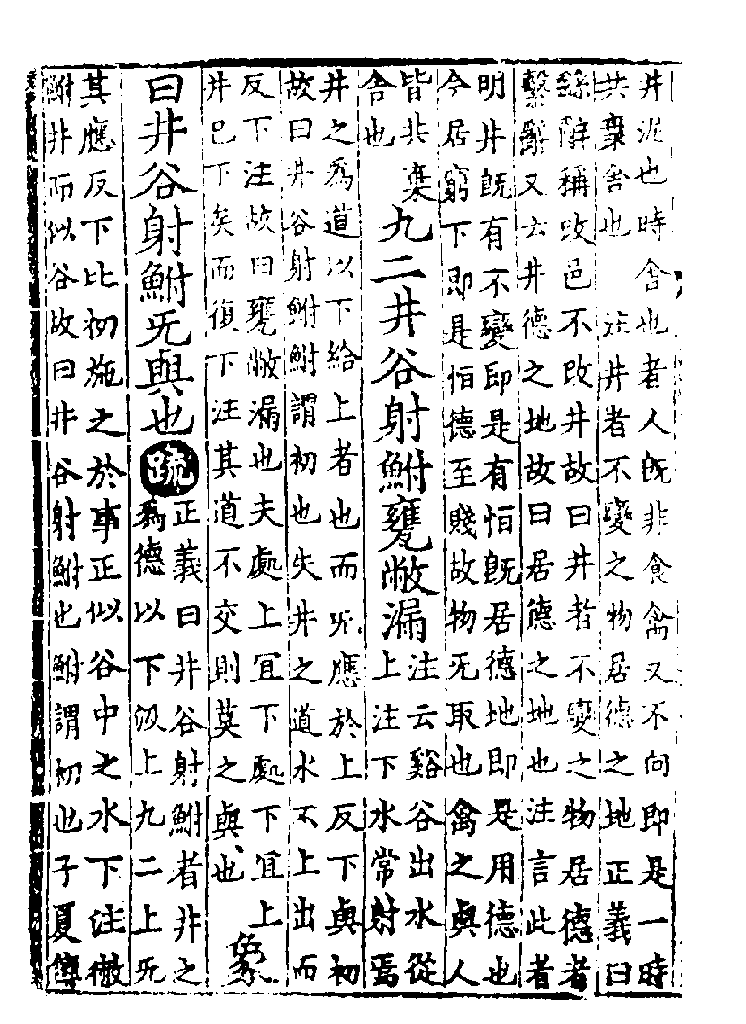 井泥也時舍也者人既非食禽又不向即是一時
共棄舍也　注井者不變之物居德之地正義曰
繇辭稱改邑不改井故曰井者不變之物居德者
繫辭又云井德之地故曰居德之地也注言此者
明井既有不變即是有恒既居德地即是用德也
今居窮下即是恒德至賤故物无取也禽之與人
皆共棄
舍也
九二井谷射鮒甕敝漏
注云谿谷出水從
上注下水常射焉
井之為道以下給上者也而无應於上反下與初
故曰井谷射鮒鮒謂初也失井之道水不上出而
反下注故曰甕敝漏也夫處上宜下處下宜上
井已下矣而復下注其道不交則莫之與也
象
曰井谷射鮒无與也
疏
正義曰井谷射鮒者井之
為德以下汲上九二上无
其應反下比初施之於事正似谷中之水下注敝
鮒井而似谷故曰井谷射鮒也鮒謂初也子夏傳